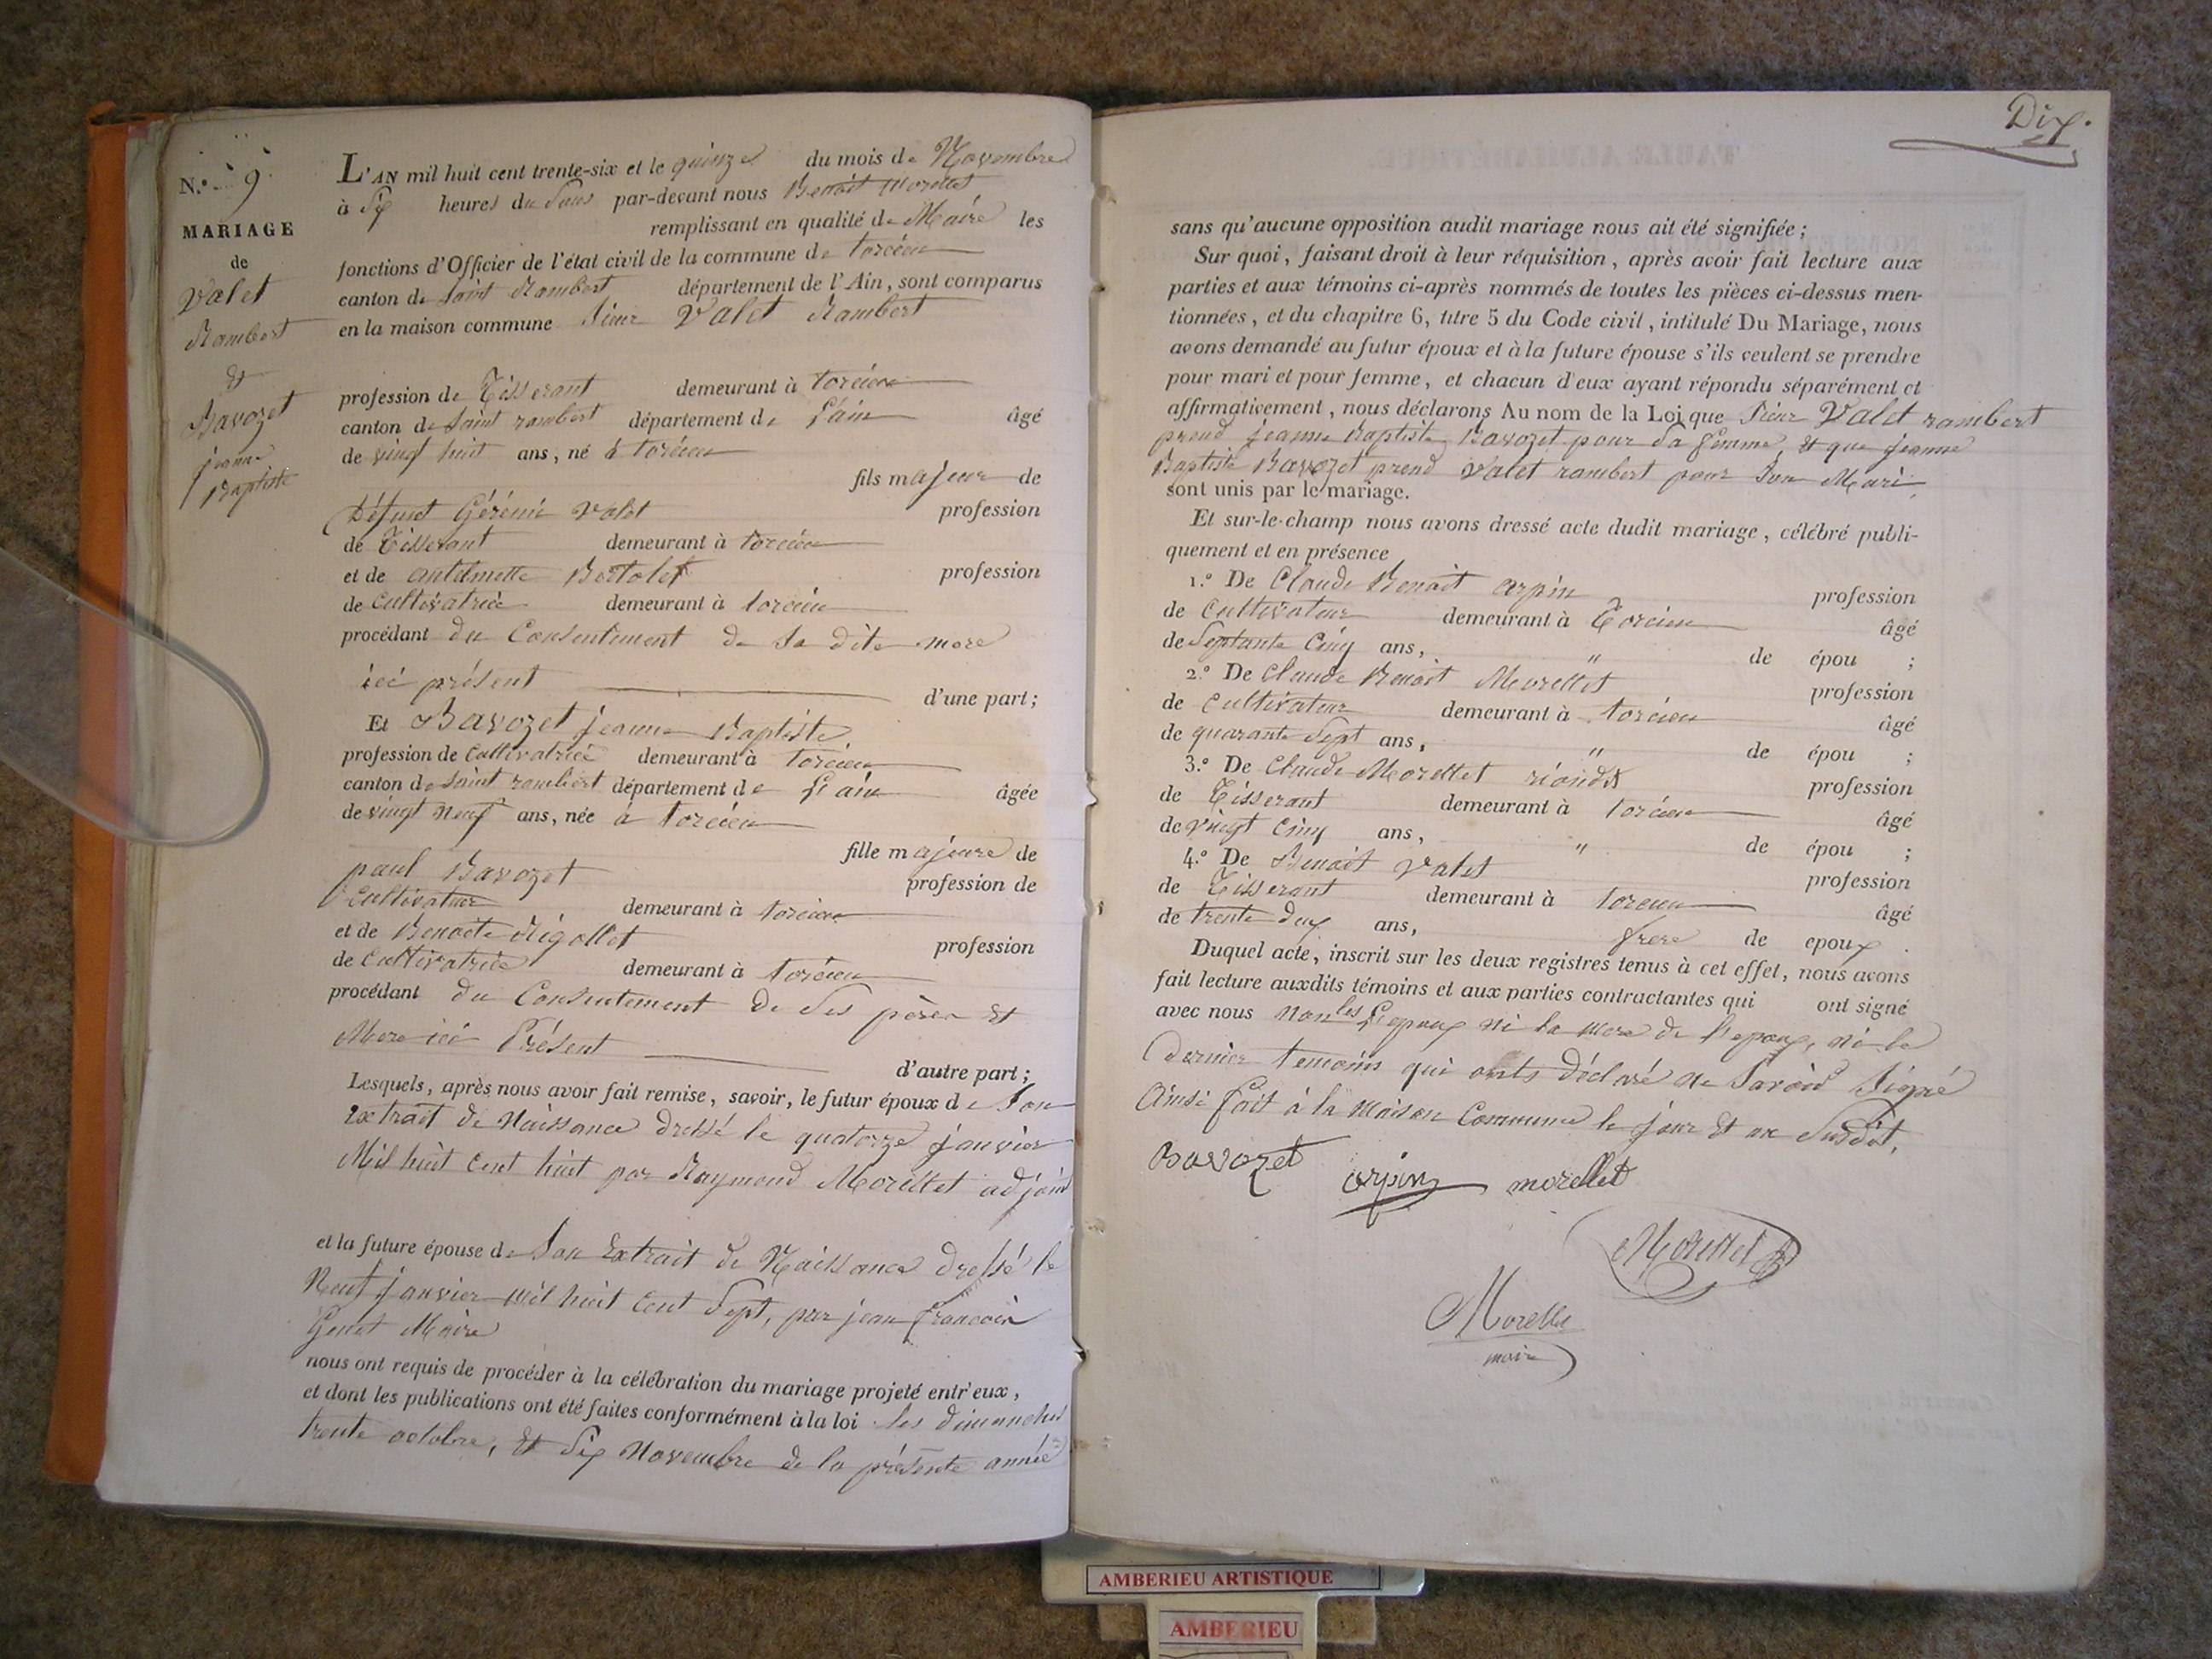 N.° 9
MARIAGE
de
Valet
Rambert
et
Bavozet
jeanne
Baptiste
L'AN mil huit cent trente-six et le quinze du mois de Novembre
à Six heures du Soir par-devant nous Benoit Morellet
remplissant en qualité de Maire les
fonctions d'Officier de l'état civil de la commune de torcieu
canton de Saint Rambert département de l'Ain, sont comparus
en la maison commune Sieur Valet Rambert
profession de Tisserant demeurant à torcieu
canton de Saint rambert département de L'ain âgé
de vingt huit ans, né à torcieu
fils majeur de
Défunt Gérémie Valet profession
de Tisserant demeurant à torcieu
et de antelmette Bertolet profession
de Cultivatrice demeurant à torcieu
procédant du Consentement de Sa dite mere
ici présent d'une part;
Et Bavozet jeanne Baptiste
profession de Cultivatrice demeurant à torcieu
canton de Saint rambert département de L'ain âgée
de vingt neuf ans, née à torcieu
fille majeure de
paul Bavozet profession de
Cultivateur demeurant à torcieu
et de Benoite Rigollet profession
de Cultivatrice demeurant à torcieu
procédant du Consentement de Ses pères et
Mere ici Présent d'autre part;
Lesquels, après nous avoir fait remise, savoir, le futur époux de Son
extrait de Naissance dressé le quatorze janvier
Mil huit cent huit par Raymond Morellet adjoint
et la future épouse de Son Extrait de Naissance dressé le
Neuf janvier mil huit Cent Sept, par jean françois
Genet Maire
nous ont requis de procéder à la célébration du mariage projeté entr'eux,
et dont les publications ont été faites conformément à la loi les dimanches
trente octobre, et Six Novembre de la présente année
Dix.
sans qu'aucune opposition audit mariage nous ait été signifiée;
Sur quoi, faisant droit à leur réquisition, après avoir fait lecture aux
parties et aux témoins ci-après nommés de toutes les pièces ci-dessus men-
tionnées, et du chapitre 6, titre 5 du Code civil, intitulé Du Mariage, nous
avons demandé au futur époux et à la future épouse s'ils veulent se prendre
pour mari et pour femme, et chacun d'eux ayant répondu séparément et
affirmativement, nous déclarons Au nom de la Loi que Sieur Valet rambert
prend jeanne Baptiste Bavozet pour Sa femme, et que jeanne
Baptiste Bavozet prend Valet rambert pour Son Mari
sont unis par le mariage.
Et sur-le-champ nous avons dressé acte dudit mariage, célébré publi-
quement et en présence
1.° De Claude Benoit arpin profession
de Cultivateur demeurant à Torcieu âgé
de Septante Cinq ans, " de épou ;
2.° De Claude Benoit Morellet profession
de Cultivateur demeurant à torcieu âgé
de quarante Sept ans, " de épou ;
3.° De Claude Morellet profession
de Tisserant demeurant à torcieu âgé
de vingt Cinq ans, " de épou ;
4.° De Benoit Valet profession
de Tisserant demeurant à torcieu âgé
de trente deux ans, frere de epoux .
Duquel acte, inscrit sur les deux registres tenus à cet effet, nous avons
fait lecture auxdits témoins et aux parties contractantes qui ont signé
avec nous Non les Epoux ni la mere de l'epoux, ni le
dernier temoins qui onts déclaré ne Savoir Signé
Ainsi fait à la Maison Commune le jour et an Susdit,
Bavozet arpin morellet
Morellet
Morellet
maire
AMBERIEU ARTISTIQUE
AMBERIEU